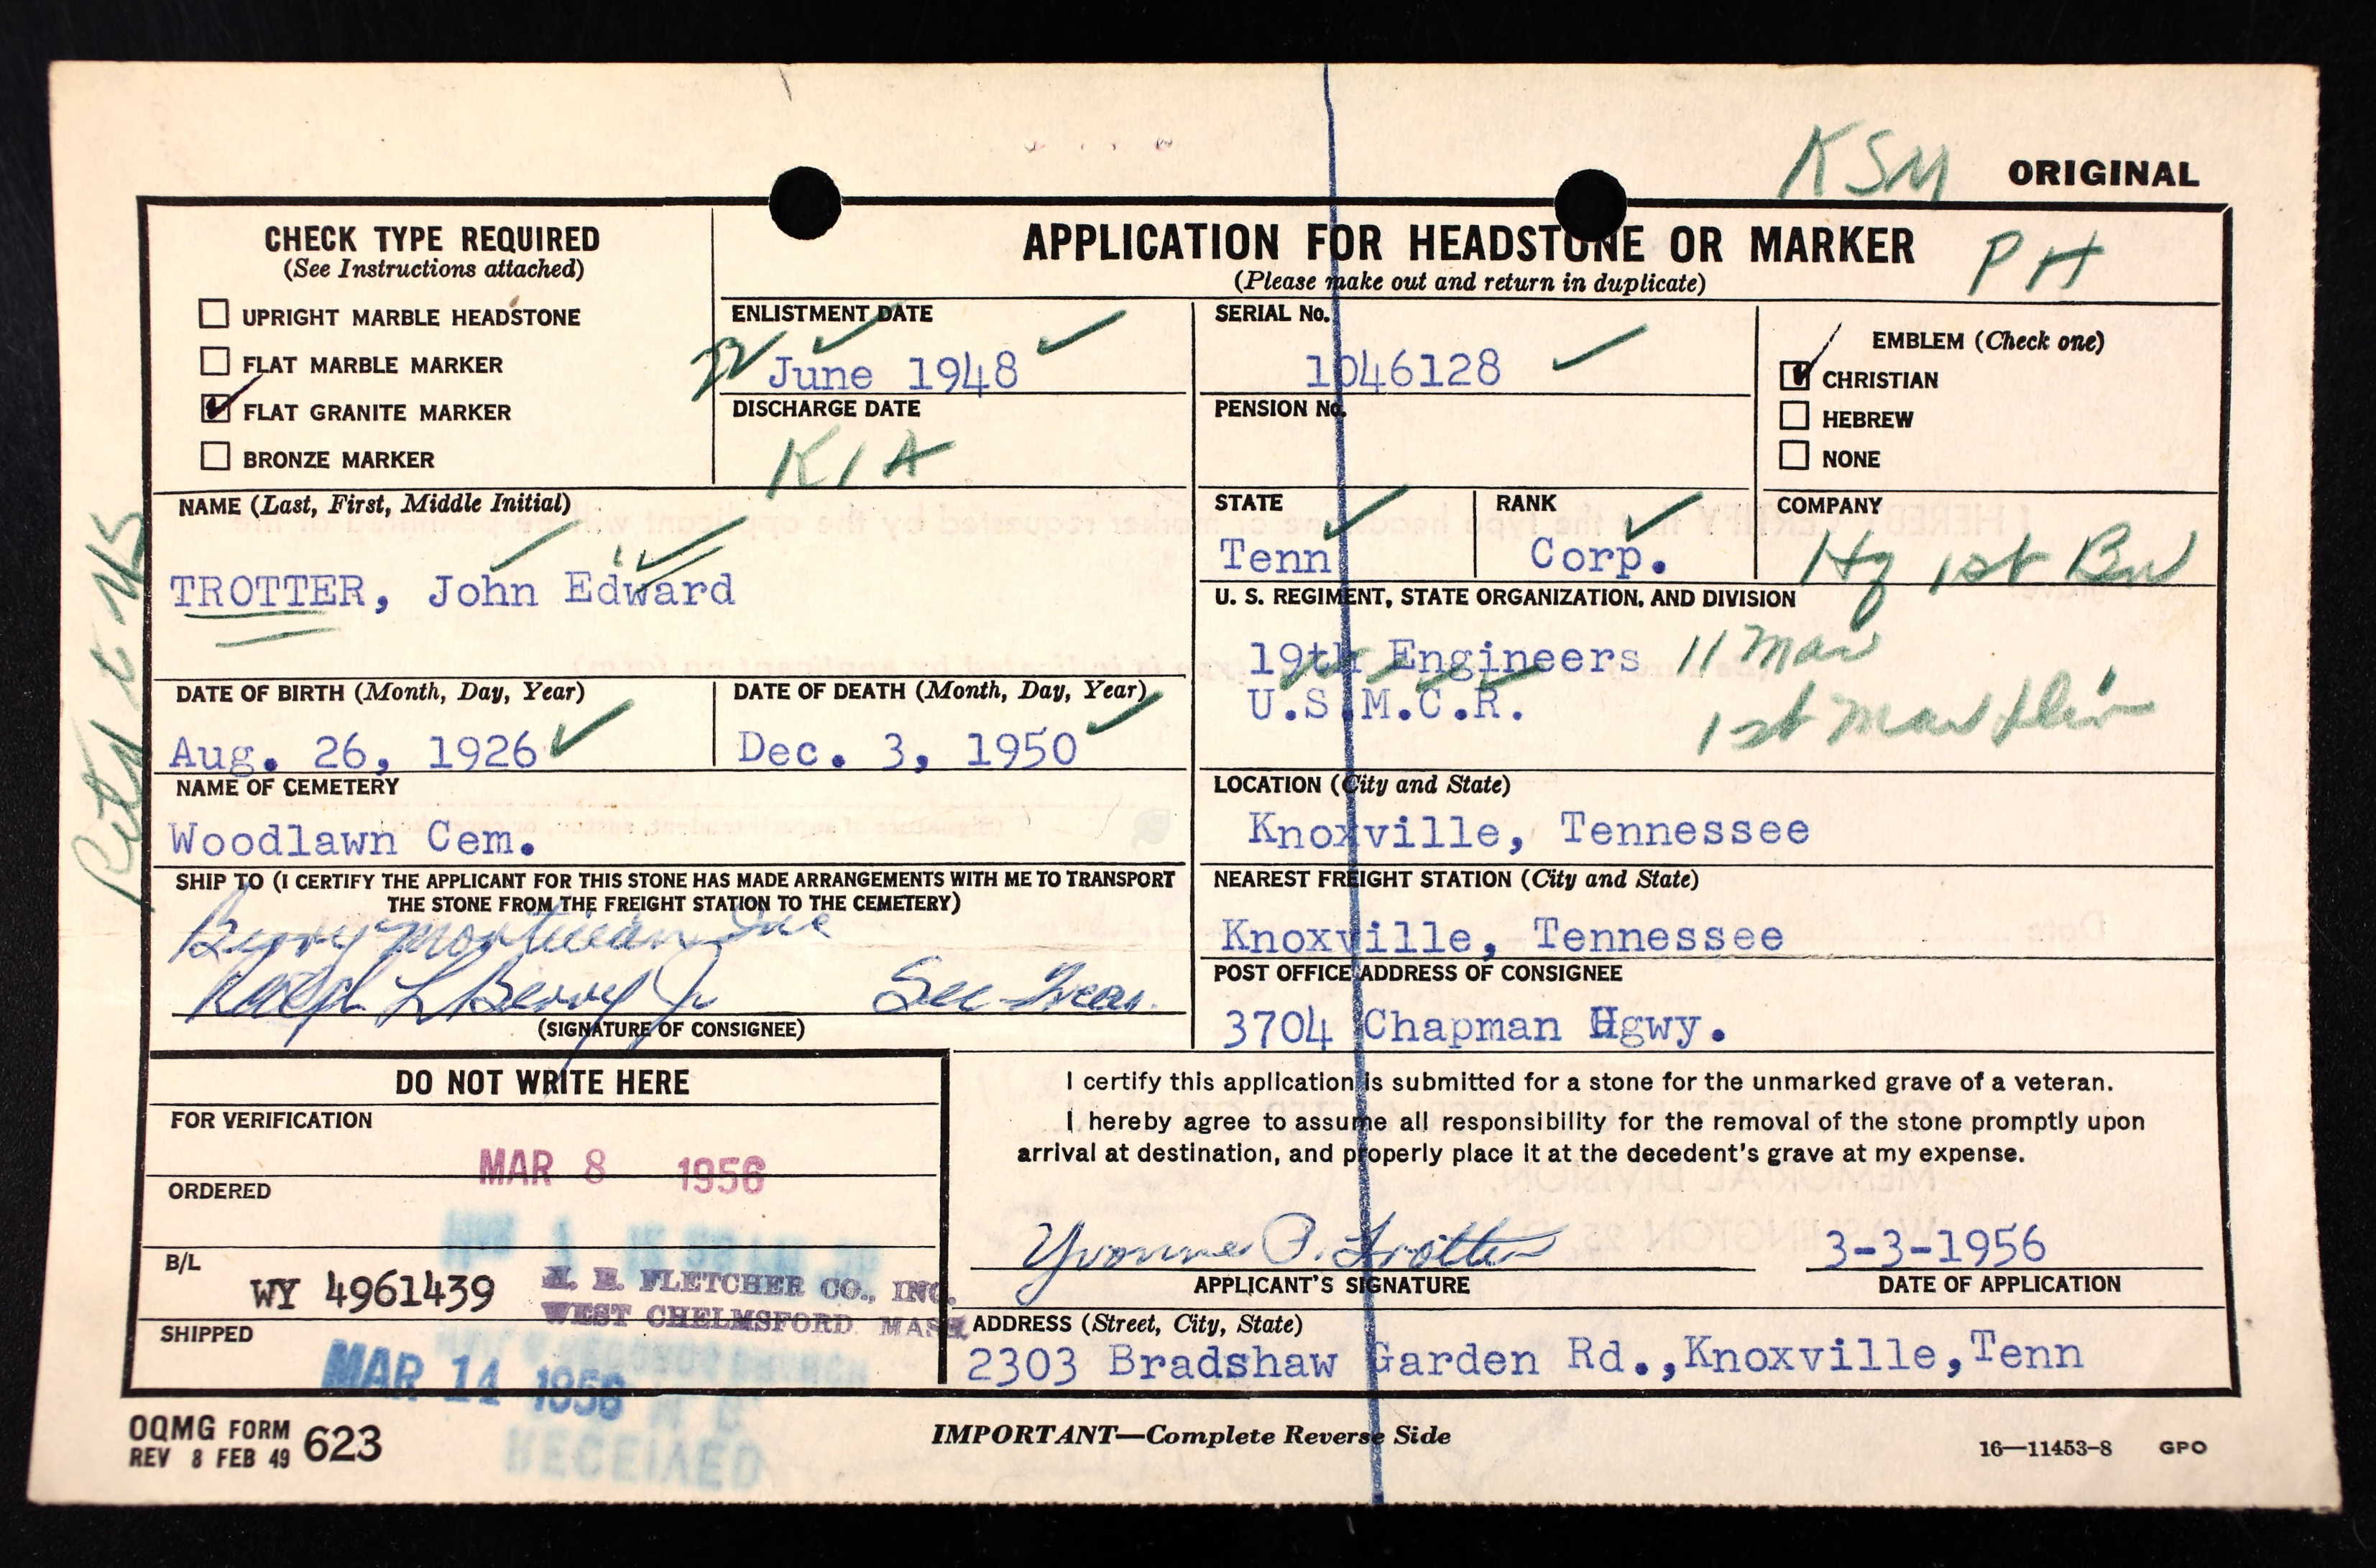 KSM
ORIGINAL
CHECK TYPE REQUIRED
(See Instructions attached)
UPRIGHT MARBLE HEADSTONE
FLAT MARBLE MARKER
FLAT GRANITE MARKER
BRONZE MARKER
APPLICATION FOR HEADSTONE OR MARKER
PH
(Please make out and return in duplicate)
ENLISTMENT DATE
22 June 1948
DISCHARGE DATE
KIA
SERIAL No.
1046128
PENSION No.
EMBLEM (Check one)
CHRISTIAN
HEBREW
NONE
NAME (Last, First, Middle Initial)
TROTTER, John Edward
STATE
Tenn
RANK
Corp.
COMPANY
Hq 1st Bn
U. S. REGIMENT, STATE ORGANIZATION, AND DIVISION
19th Engineers 11 Mar
U.S.M.C.R. 1st Mar Div
DATE OF BIRTH (Month, Day, Year)
Aug. 26, 1926
DATE OF DEATH (Month, Day, Year)
Dec. 3, 1950
NAME OF CEMETERY
Woodlawn Cem.
LOCATION (City and State)
Knoxville, Tennessee
SHIP TO (I CERTIFY THE APPLICANT FOR THIS STONE HAS MADE ARRANGEMENTS WITH ME TO TRANSPORT
THE STONE FROM THE FREIGHT STATION TO THE CEMETERY)
Berry Mortician Inc
Ralph L Berry Jr Sec-Treas.
(SIGNATURE OF CONSIGNEE)
NEAREST FREIGHT STATION (City and State)
Knoxville, Tennessee
POST OFFICE ADDRESS OF CONSIGNEE
3704 Chapman Hgwy.
DO NOT WRITE HERE
FOR VERIFICATION
MAR 8 1956
ORDERED
B/L
WY 4961439
H. E. FLETCHER CO., INC.
WEST CHELMSFORD MASS.
SHIPPED
MAR 14 1956
RECEIVED
I certify this application is submitted for a stone for the unmarked grave of a veteran.
I hereby agree to assume all responsibility for the removal of the stone promptly upon
arrival at destination, and properly place it at the decedent's grave at my expense.
Yvonne P. Trotter
3-3-1956
APPLICANT'S SIGNATURE
DATE OF APPLICATION
ADDRESS (Street, City, State)
2303 Bradshaw Garden Rd.,Knoxville,Tenn
OQMG FORM 623
REV 8 FEB 49
IMPORTANT—Complete Reverse Side
16—11453-8 GPO